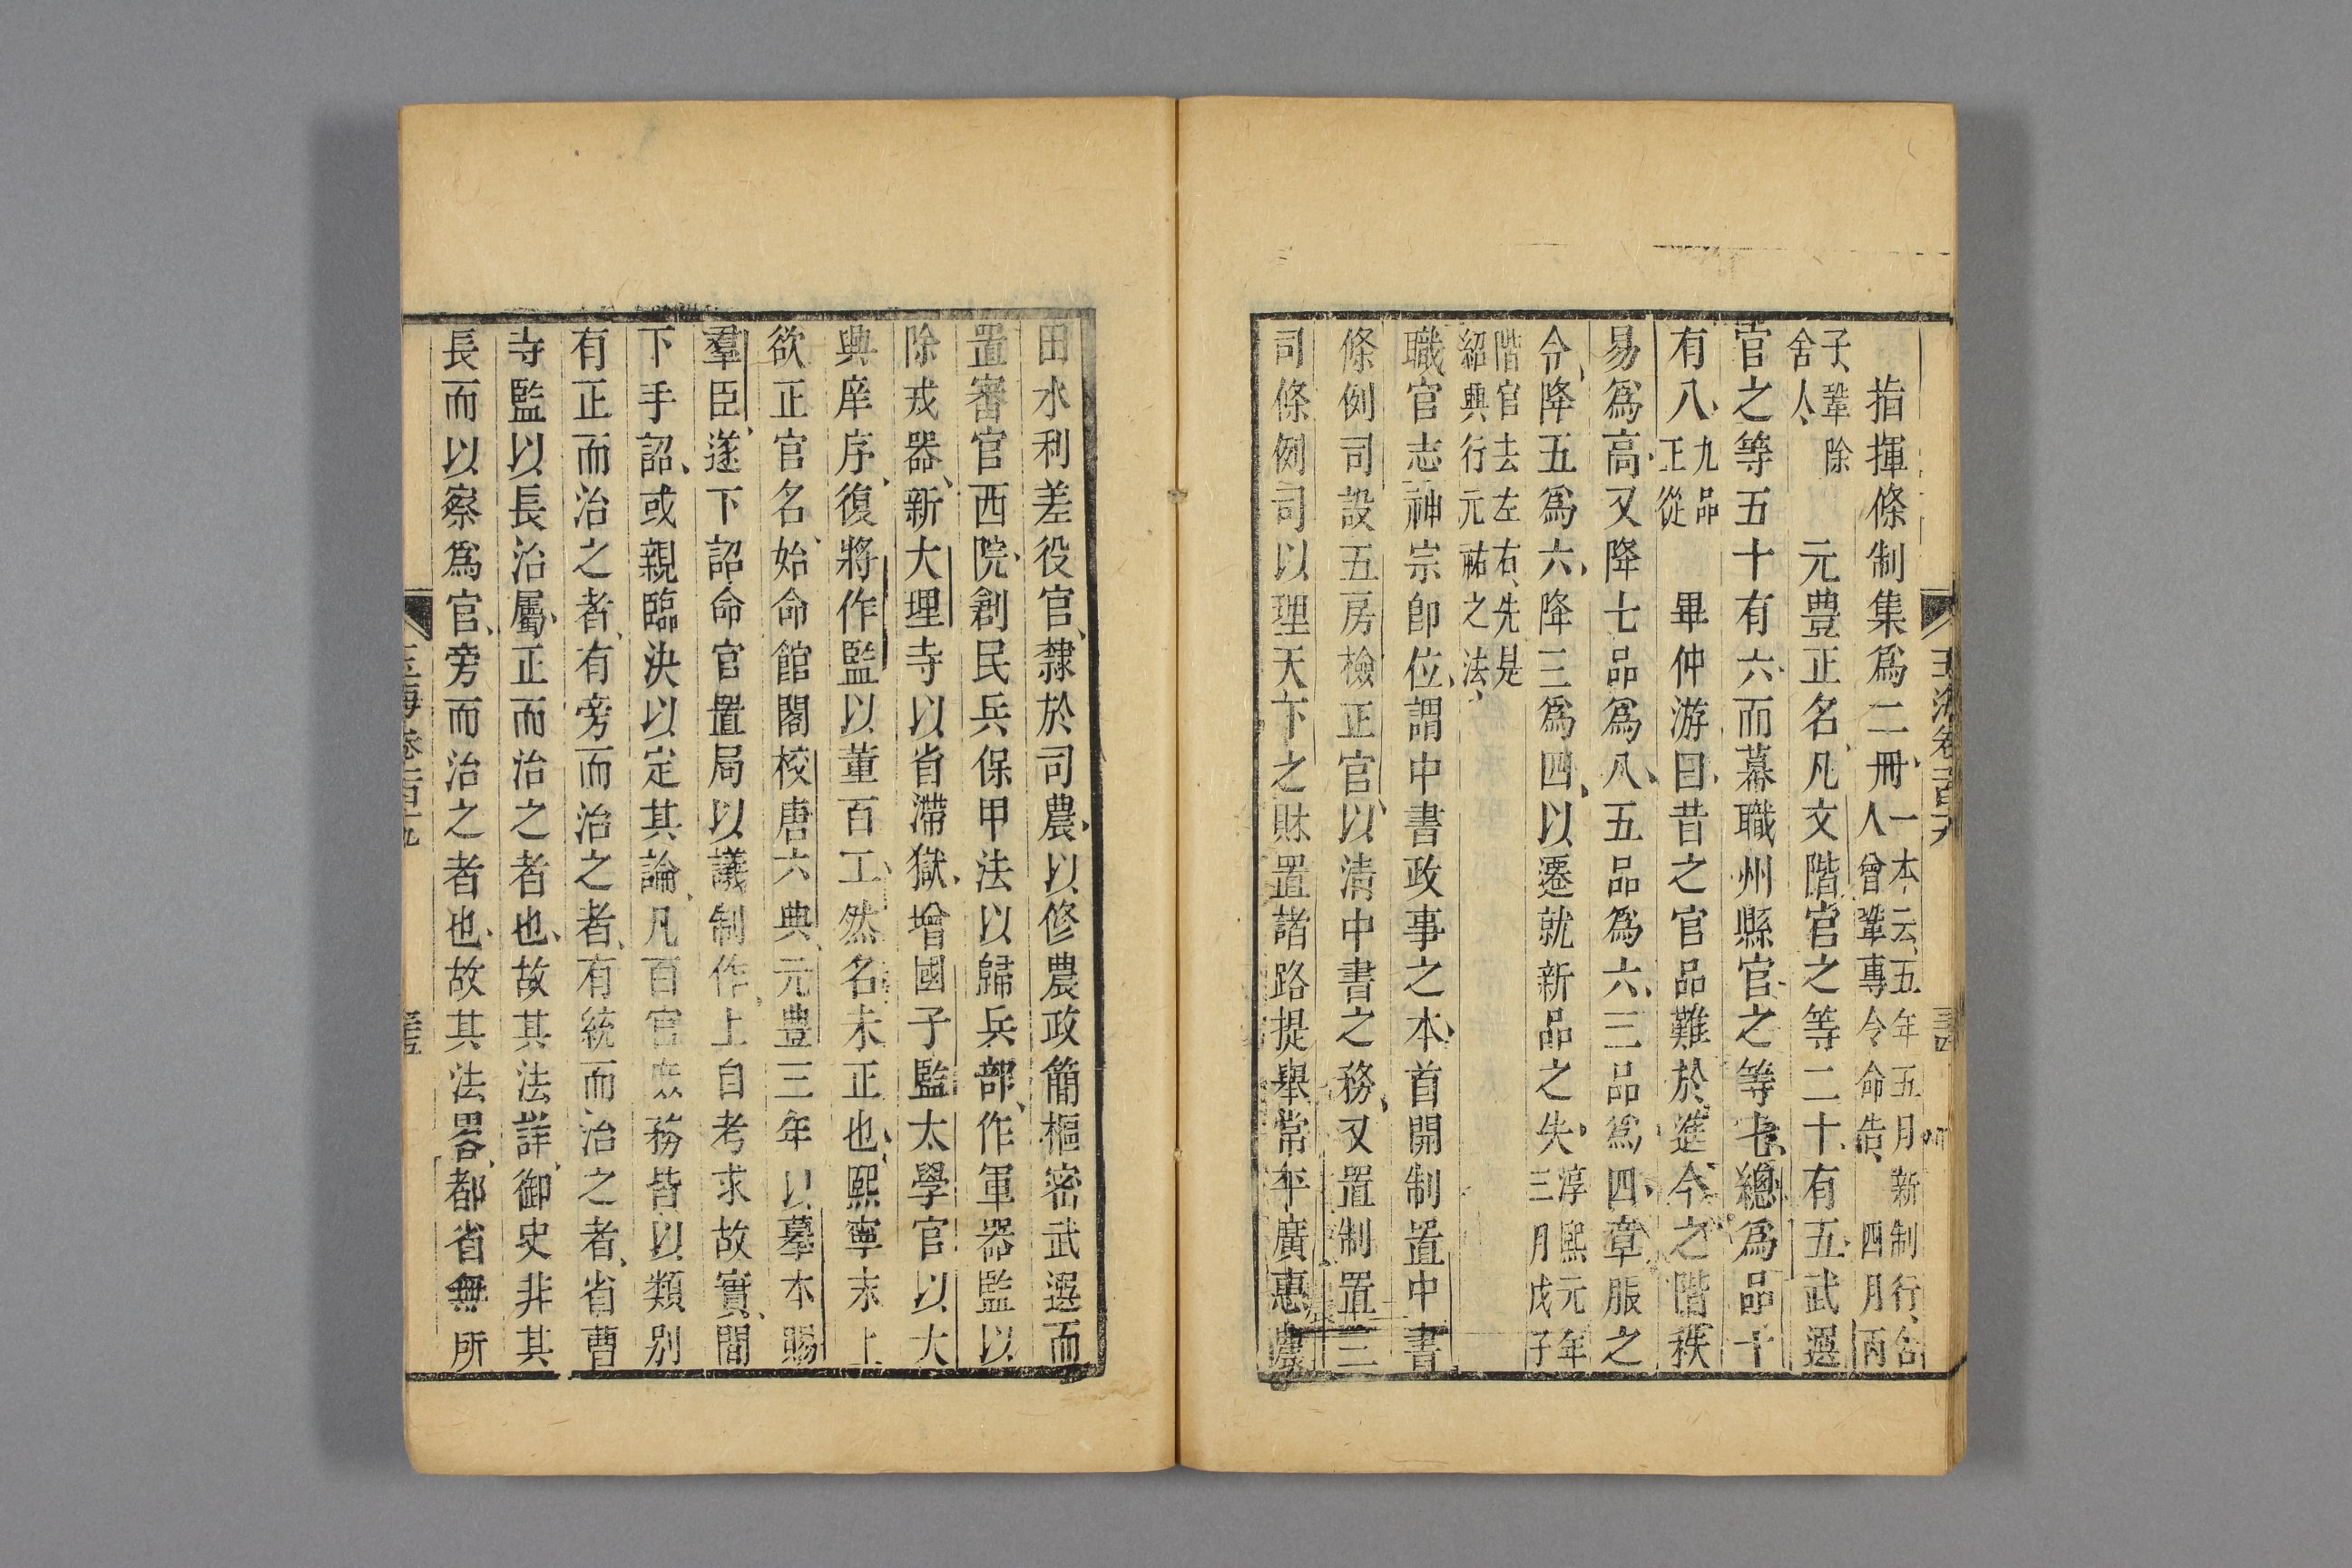 玉海卷百十九
指揮條制集爲二冊一本云五年五月新制行舍人曾鞏專令命告四月丙
子鞏除舍人元豊正名凡文階官之等二十有五武選
官之等五十有六而幕職州縣官之等七總爲品十
有八九品正從畢仲游曰昔之官品難於進今之階秩
易爲高又降七品爲八五品爲六三品爲四章服之
令降五爲六降三爲四以遷就新品之失淳熙元年三月戊子
階官去左右先是紹興行元祐之法
職官志神宗卽位謂中書政事之本首開制置中書
條例司設五房檢正官以清中書之務又置制置三
司條例司以理天下之財置諸路提舉常平廣惠農
田水利差役官隸於司農以修農政簡樞密武選而
置審官西院創民兵保甲法以歸兵部作軍器監以
除戎器新大理寺以省滯獄增國子監太學官以大
興庠序復將作監以董百工然名未正也熙寧末上
欲正官名始命館閣校唐六典元豊三年以摹本賜
羣臣遂下詔命官置局以議制作上自考求故實間
下手詔或親臨決以定其論凡百官庶務皆以類別
有正而治之者有旁而治之者有統而治之者省曹
寺監以長治屬正而治之者也故其法詳御史非其
長而以察爲官旁而治之者也故其法畧都省無所
玉海卷百十九